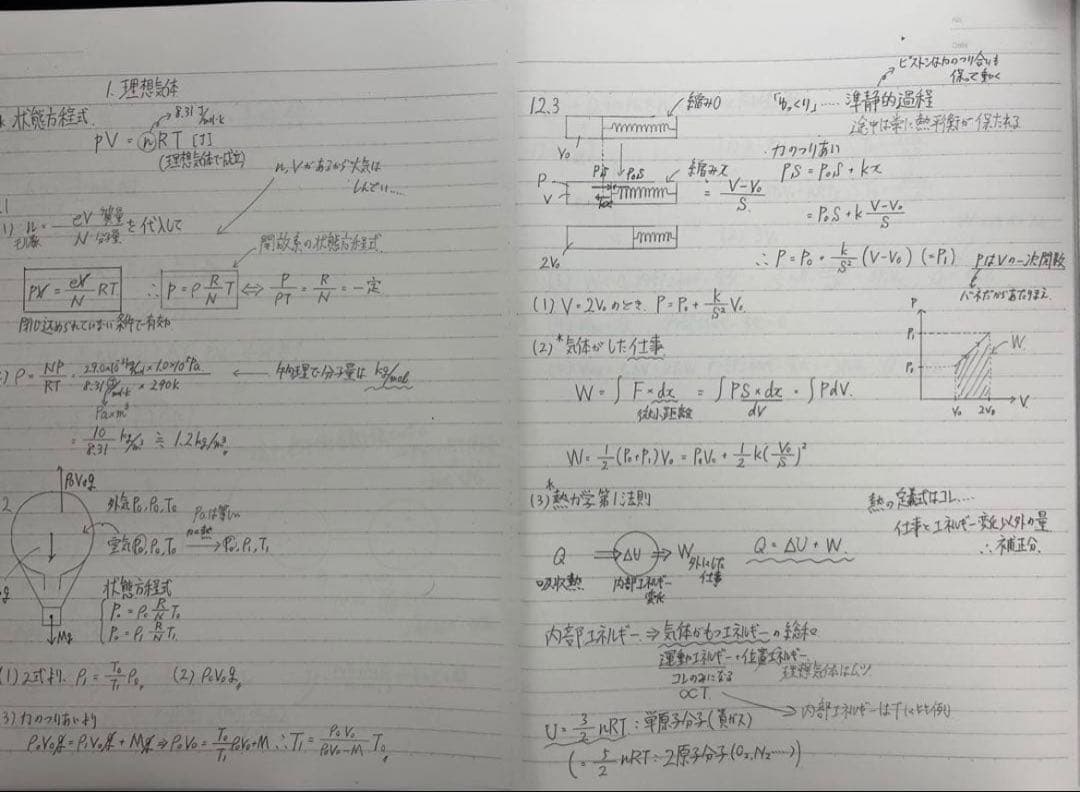 1. 理想気体
状態方程式
8.31 J/mol・k
PV = nRT [J]
(理想気体で成立)
n, Vがあるから大気は
しんどい……
(1) n = ρV 質量 / N 分子量 を代入して
モル数
開放系の状態方程式
PV = ρV/N RT ∴ P = ρ R/N T ⇔ P/ρT = R/N = 一定
閉じ込められていない条件で有効
ρ = NP/RT = 29.0×10⁻³kg/mol × 1.0×10⁵Pa / 8.31 J/mol・k × 290k ← 物理で分子量は kg/mol
Pa×m³
= 10/8.31 kg/m³ ≒ 1.2kg/m³
ρ₀V₀g
外気P₀, ρ₀, T₀
P₀は等しい
空気P₀, ρ₀, T₀ 加熱→ P₀, ρ₁, T₁
状態方程式
P₀ = ρ₀ R/N T₀
P₀ = ρ₁ R/N T₁
Mg
(1) 2式より. ρ₁ = T₀/T₁ ρ₀ (2) ρ₀V₀g
(3) 力のつりあいより
ρ₀V₀g = ρ₁V₀g + Mg ⇒ ρ₀V₀ = T₀/T₁ ρ₀V₀ + M ∴ T₁ = ρ₀V₀/ρ₀V₀−M T₀
ピストンは力のつり合いも
保って動く
12.3
縮み0
「ゆっくり」…… 準静的過程
途中は常に熱平衡が保たれる
V₀
力のつりあい
PS P₀S 縮みx
P
V
kx
= V−V₀/S
PS = P₀S + kx
= P₀S + k V−V₀/S
2V₀
∴ P = P₀ + k/S² (V−V₀) (=P₁) PはVの一次関数
バネだからあたりまえ.
(1) V = 2V₀のとき. P = P₀ + k/S² V₀
(2) *気体がした仕事
W = ∫ F × dx = ∫ PS × dx = ∫ PdV.
微小距離 dV
P
P₁
P₀
W
V₀ 2V₀ V
W = 1/2 (P₀+P₁)V₀ = P₀V₀ + 1/2 k(V₀/S)²
(3) *熱力学第1法則
熱の定義式はコレ….
仕事とエネルギー変化以外の量
∴補正分.
Q ⇒ ΔU ⇒ W 外にした仕事 Q = ΔU + W.
吸収熱 内部エネルギー変化
内部エネルギー ⇒ 気体がもつエネルギーの総和
運動エネルギー + 位置エネルギー
コレのみになる 理想気体はムシ
∝T
→ 内部エネルギーはTに比例
U = 3/2 nRT : 単原子分子(貴ガス)
(= 5/2 nRT : 2原子分子(O₂, N₂……))